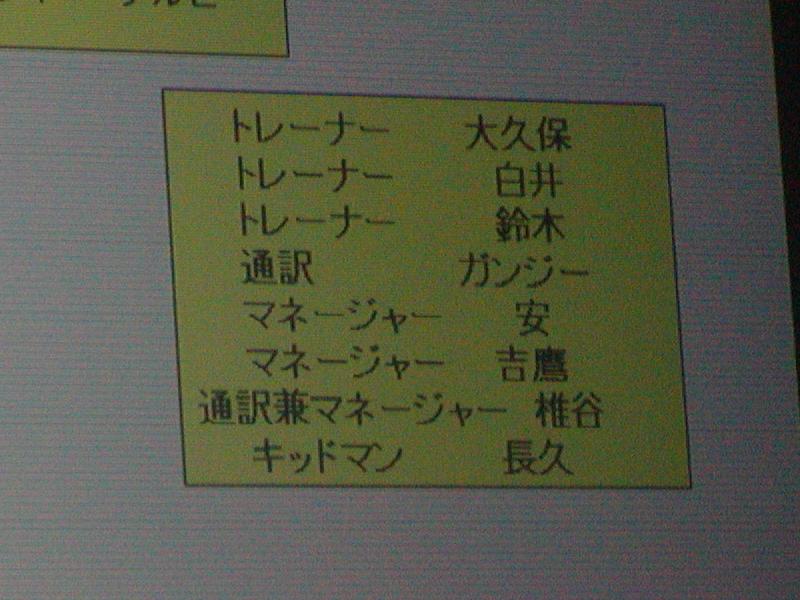 トレーナー 大久保
トレーナー 白井
トレーナー 鈴木
通訳 ガンジー
マネージャー 安
マネージャー 吉鷹
通訳兼マネージャー 椎谷
キッドマン 長久